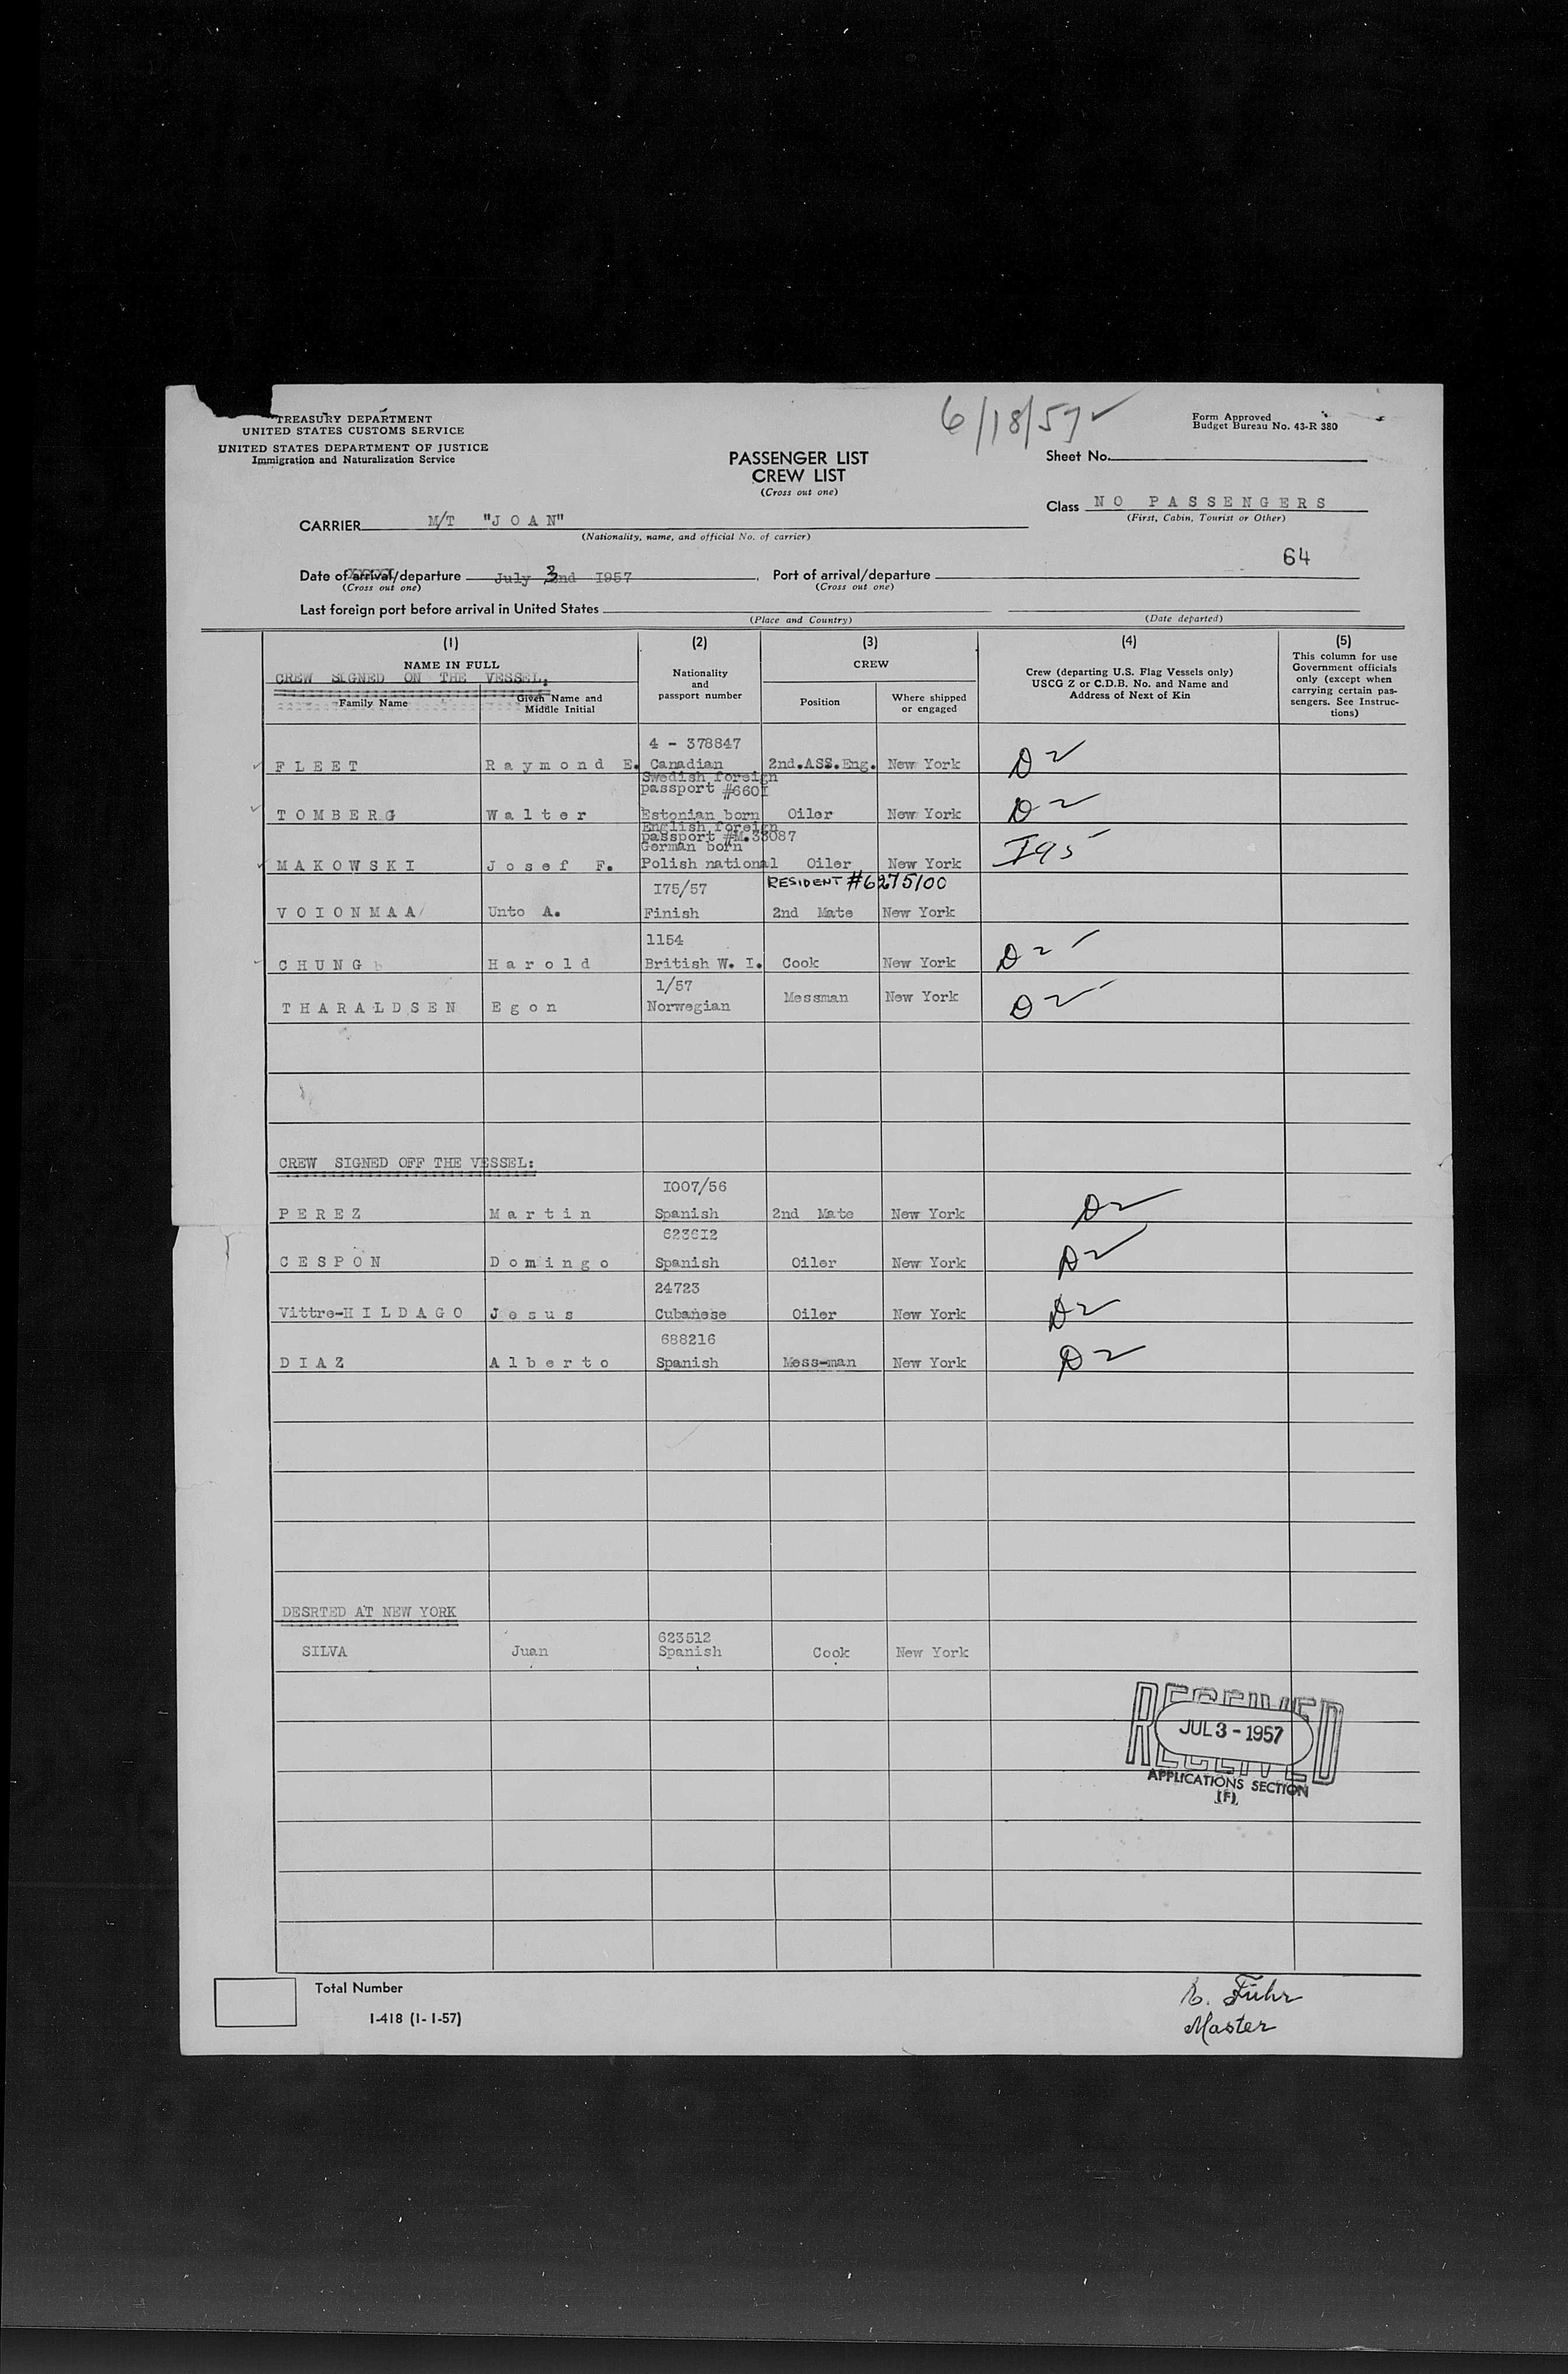 6/18/57 ✓
TREASURY DEPARTMENT
UNITED STATES CUSTOMS SERVICE
UNITED STATES DEPARTMENT OF JUSTICE
Immigration and Naturalization Service
Form Approved
Budget Bureau No. 43-R 380
PASSENGER LIST
CREW LIST
(Cross out one)
Sheet No.
Class N O P A S S E N G E R S
(First, Cabin, Tourist or Other)
CARRIER M/T "J O A N"
(Nationality, name, and official No. of carrier)
64
Date of arrival/departure July 3nd I957
(Cross out one)
Port of arrival/departure
(Cross out one)
Last foreign port before arrival in United States
(Place and Country)
(Date departed)
(1) (2) (3) (4) (5)
NAME IN FULL
CREW SIGNED ON THE VESSEL:
Family Name
Given Name and
Middle Initial
Nationality
and
passport number
CREW
Position
Where shipped
or engaged
Crew (departing U.S. Flag Vessels only)
USCG Z or C.D.B. No. and Name and
Address of Next of Kin
This column for use
Government officials
only (except when
carrying certain pas-
sengers. See Instruc-
tions)
4 - 378847
F L E E T R a y m o n d E. Canadian 2nd.ASS.Eng. New York D2
Swedish foreign
passport #660I
T O M B E R G W a l t e r Estonian born Oiler New York D2
English foreign
passport #M.33087
German born
M A K O W S K I J o s e f F. Polish national Oiler New York I95
I75/57 RESIDENT #6275100
V O I O N M A A Unto A. Finish 2nd Mate New York
1154
C H U N G H a r o l d British W. I. Cook New York D2
1/57
T H A R A L D S E N E g o n Norwegian Messman New York D2
CREW SIGNED OFF THE VESSEL:
I007/56
P E R E Z M a r t i n Spanish 2nd Mate New York D2
6236I2
C E S P O N D o m i n g o Spanish Oiler New York D2
24723
Vittre-H I L D A G O J e s u s Cubanese Oiler New York D2
688216
D I A Z A l b e r t o Spanish Mess-man New York D2
DESRTED AT NEW YORK
623512
SILVA Juan Spanish Cook New York
RECEIVED
JUL 3 - 1957
APPLICATIONS SECTION
(F)
Total Number
I-418 (1-1-57)
Führ
Master